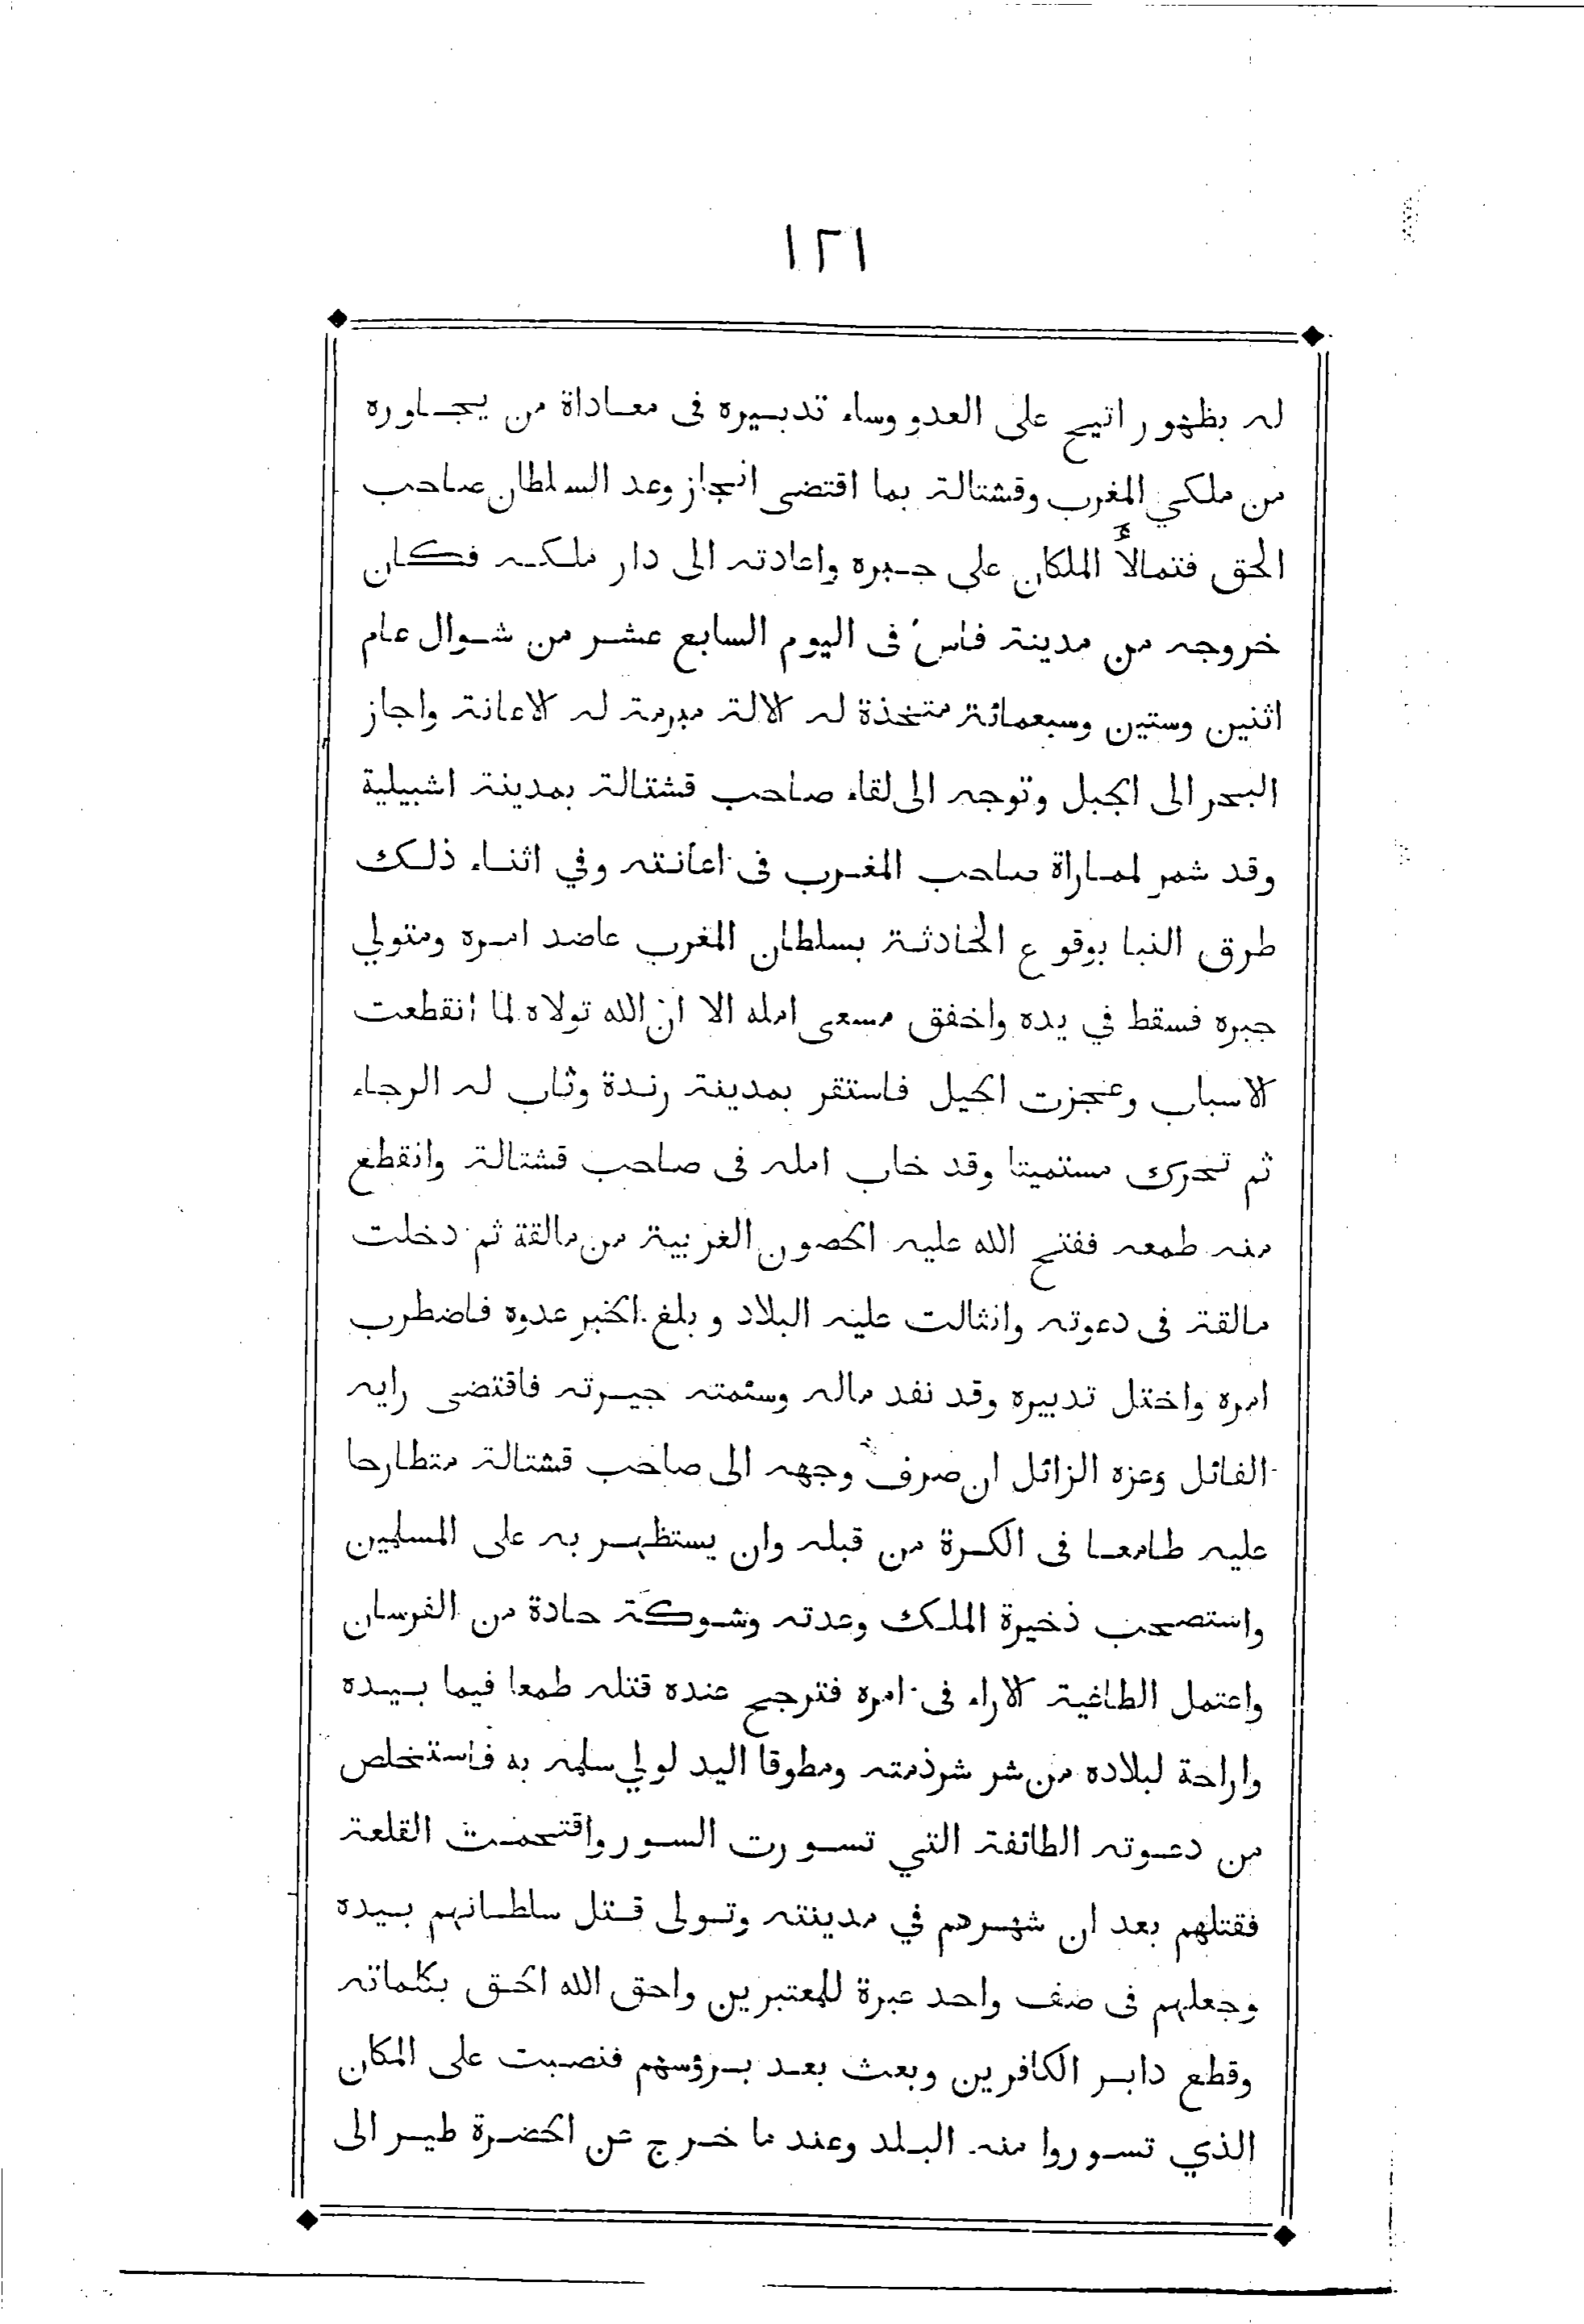 ١٢١
له بظهور اتيح على العدو وساء تدبيره فى معاداة من يجاوره
من ملكي المغرب وقشتالة بما اقتضى انجاز وعد السلطان صاحب
الحق فتمالأ الملكان على جبره واعادته الى دار ملكه فكان
خروجه من مدينة فاس فى اليوم السابع عشر من شوال عام
اثنين وستين وسبعمائة متخذة له الالة مبرمة له الاعانة واجاز
البحر الى الجبل وتوجه الى لقاء صاحب قشتالة بمدينة اشبيلية
وقد شمر لمباراة صاحب المغرب فى اعانته وفي اثناء ذلك
طرق النبا بوقوع الحادثة بسلطان المغرب عاضد امره ومتولي
جبره فسقط في يده واخفق مسعى امله الا ان الله تولاه لما انقطعت
الاسباب وعجزت الحيل فاستقر بمدينة رندة وثاب له الرجاء
ثم تحرك مستميتا وقد خاب امله فى صاحب قشتالة وانقطع
منه طمعه ففتح الله عليه الحصون الغربية من مالقة ثم دخلت
مالقة فى دعوته وانثالت عليه البلاد وبلغ الخبر عدوه فاضطرب
امره واختل تدبيره وقد نفد ماله وسئمته جيرته فاقتضى رايه
الفائل وعزه الزائل ان صرف وجهه الى صاحب قشتالة متطارحا
عليه طامعا فى الكرة من قبله وان يستظهر به على المسلمين
واستصحب ذخيرة الملك وعدته وشوكة حادة من الفرسان
واعتمل الطاغية الاراء فى امره فترجح عنده قتله طمعا فيما بيده
واراحة لبلاده من شر شرذمته ومطوقا اليد لولي سلمه به فاستخلص
من دعوته الطائفة التي تسورت السور واقتحمت القلعة
فقتلهم بعد ان شهرهم في مدينته وتولى قتل سلطانهم بيده
وجعلهم فى صف واحد عبرة للمعتبرين واحق الله الحق بكلماته
وقطع دابر الكافرين وبعث بعد برؤسهم فنصبت على المكان
الذي تسوروا منه البلد وعند ما خرج عن الحضرة طير الى